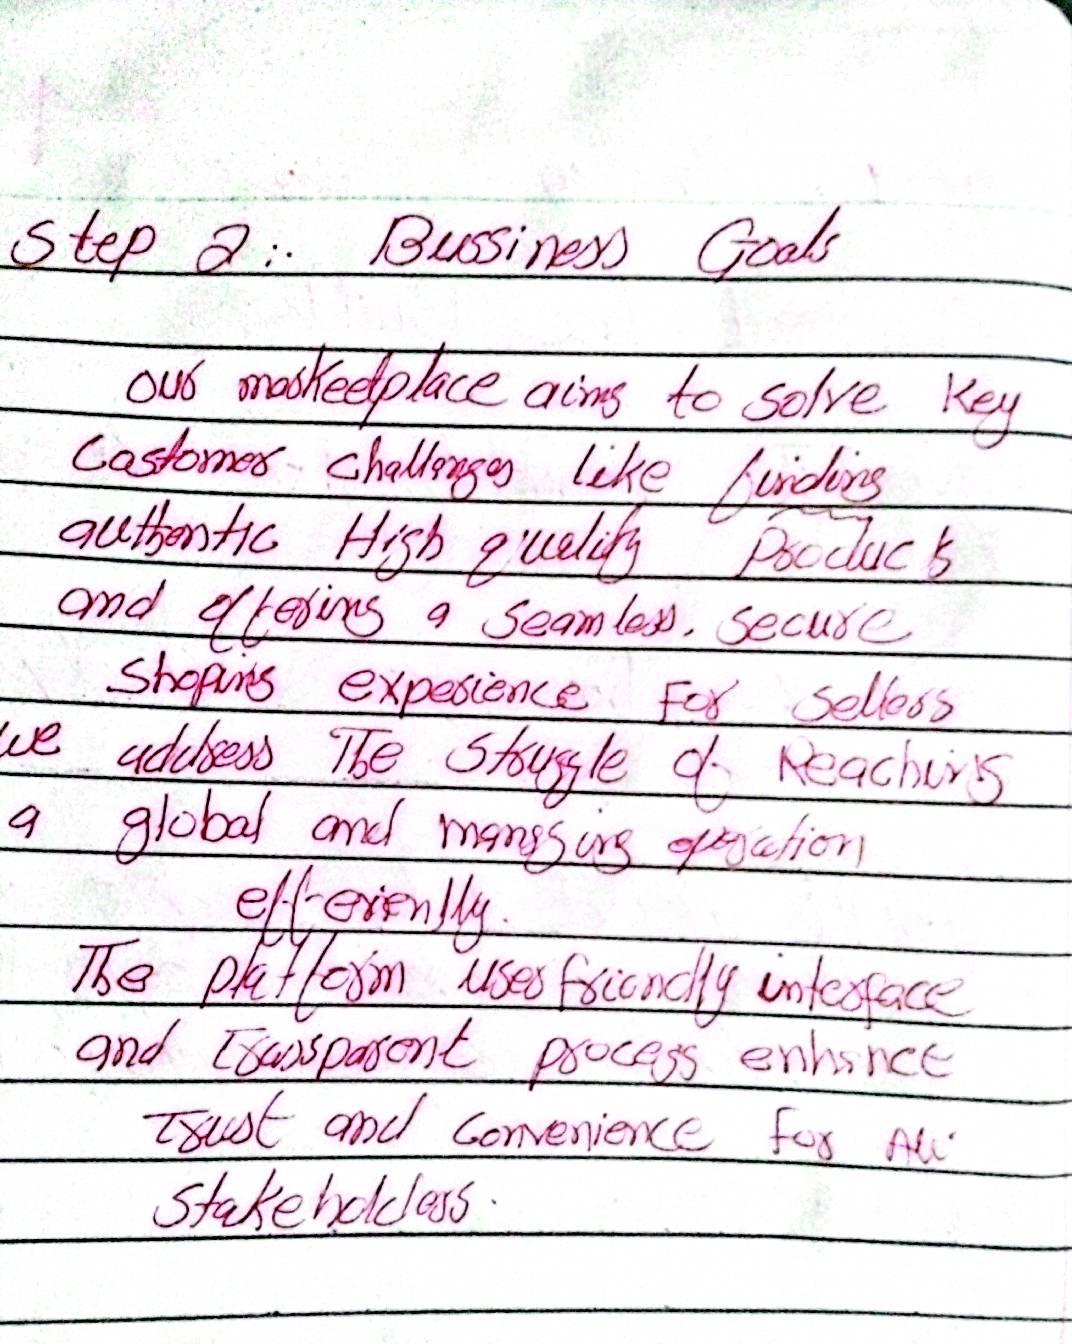 Step 2:. Bussiness Goals
our marketplace aims to solve Key
Customer challenges like finding
authentic High quality Products
and offering a seamless, secure
Shoping experience For Sellers
we address The Struggle of Reaching
a global and managing operation
efficiently.
The platform user friendly interface
and transparent process enhance
Trust and convenience for All
Stakeholders.